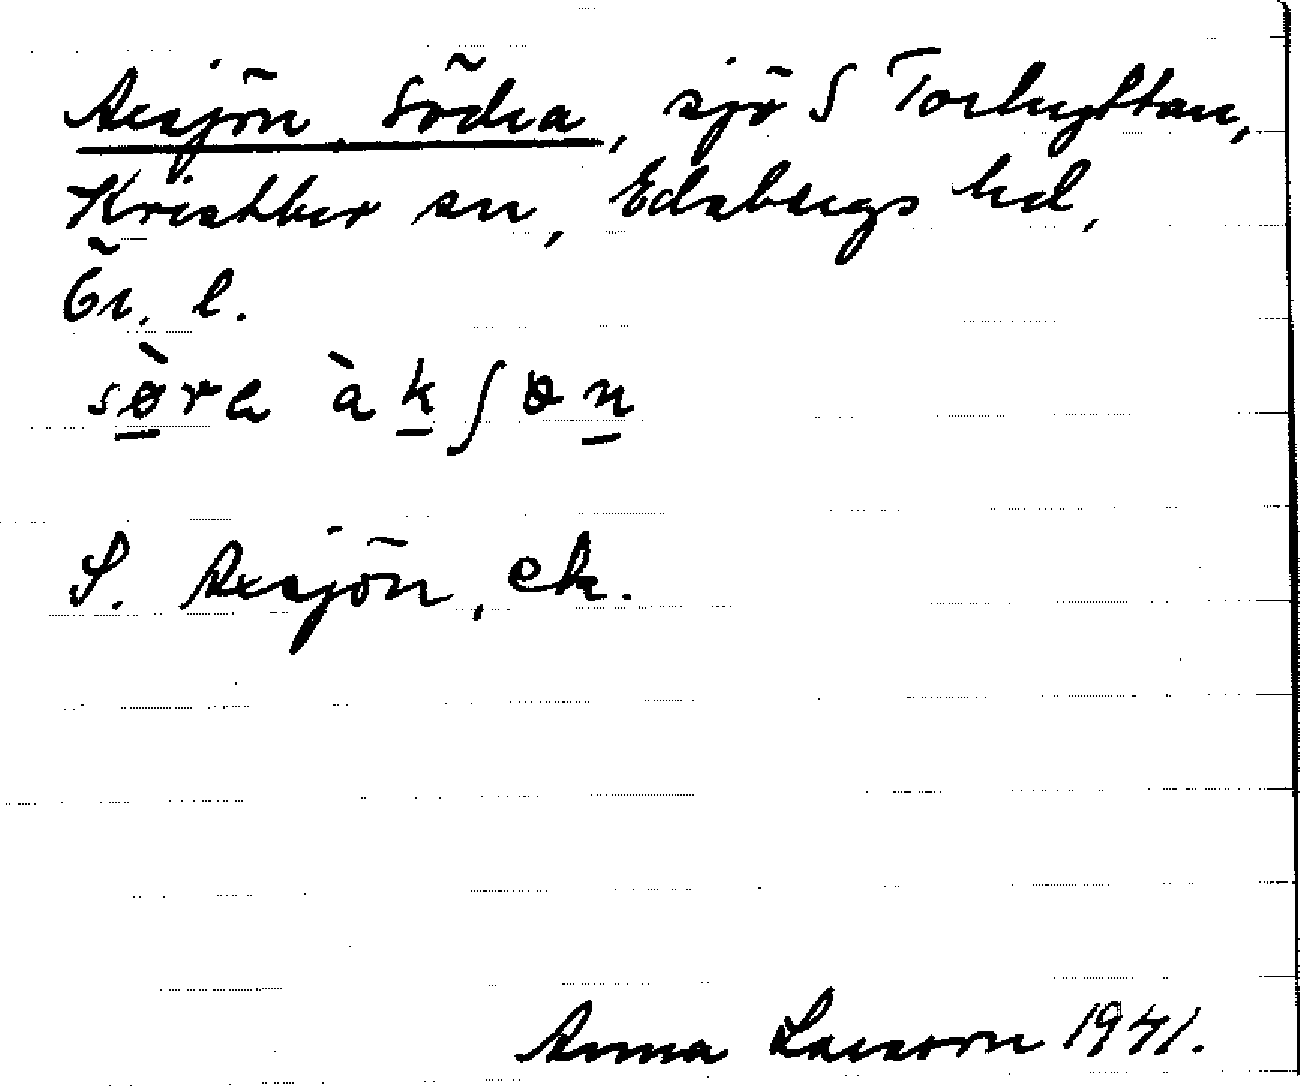 Axsjön, Södra, sjö S Torhyttan,
Kvistbro sn, Edsbergs hd,
Ör. l.
sø̀ra àkʃɵn
S. Axsjön, ek.
Anna Larsson 1941.